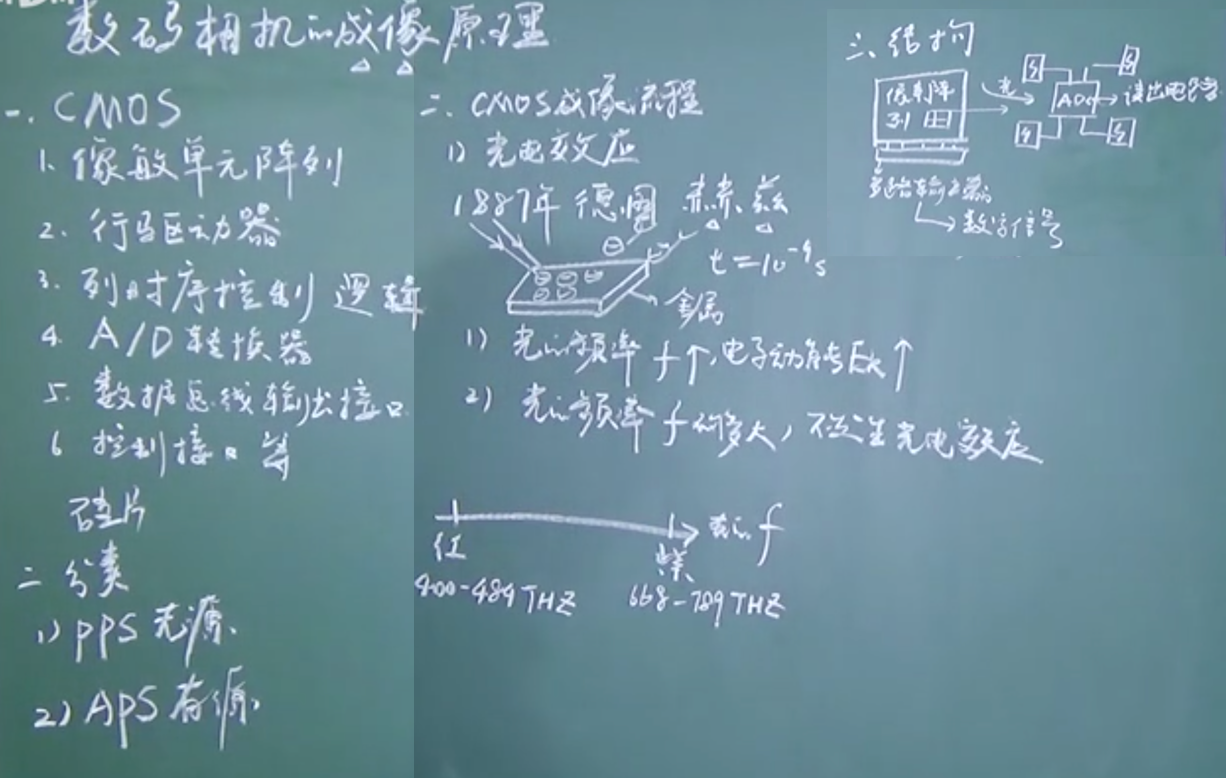 数码相机的成像原理
一. CMOS
1. 像敏单元阵列
2. 行驱动器
3. 列时序控制逻辑
4. A/D转换器
5. 数据总线输出接口
6 控制接口等
硅片
二 分类
1) PPS 无源
2) APS 有源
二. CMOS成像流程
1) 光电效应
1887年 德国 赫兹
t=10⁻⁹s
金属
1) 光的频率 f↑, 电子动能Ek↑
2) 光的频率 f 够大,
光电效应
红
紫
光的 f
400-484THZ
668-789THZ
三、结构
像素阵
列
光
ADC
读出电路
数字信号